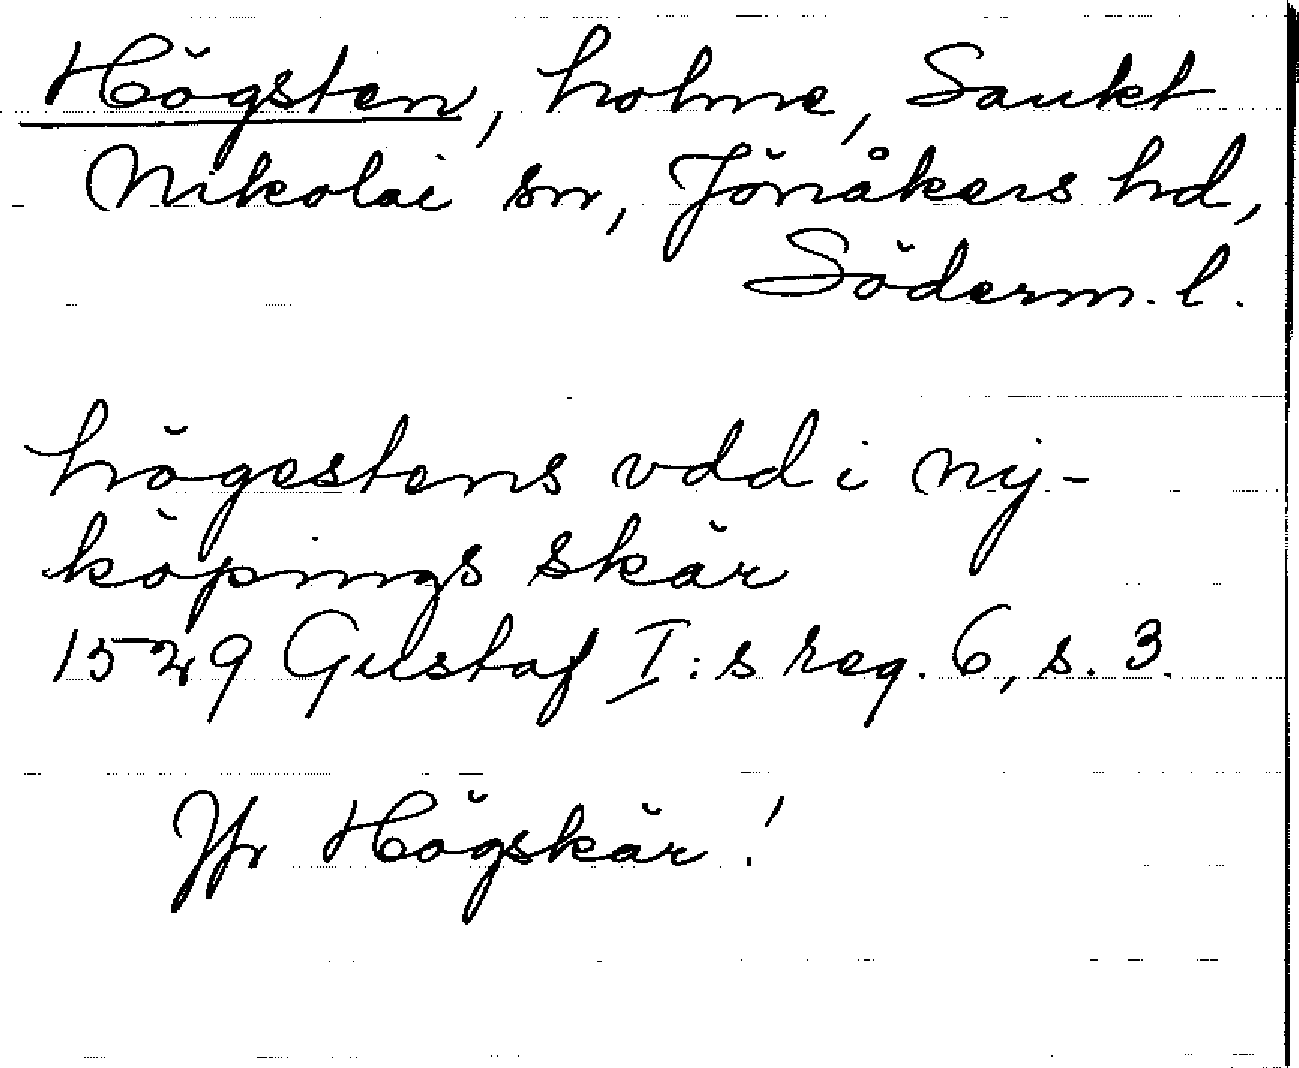 Högsten, holme, Sankt
Nikolai sn, Jönåkers hd,
Söderm. l.
högestens vdd i ny-
köpings skär
1529 Gustaf I:s reg. 6, s. 3.
Jfr Högskär!